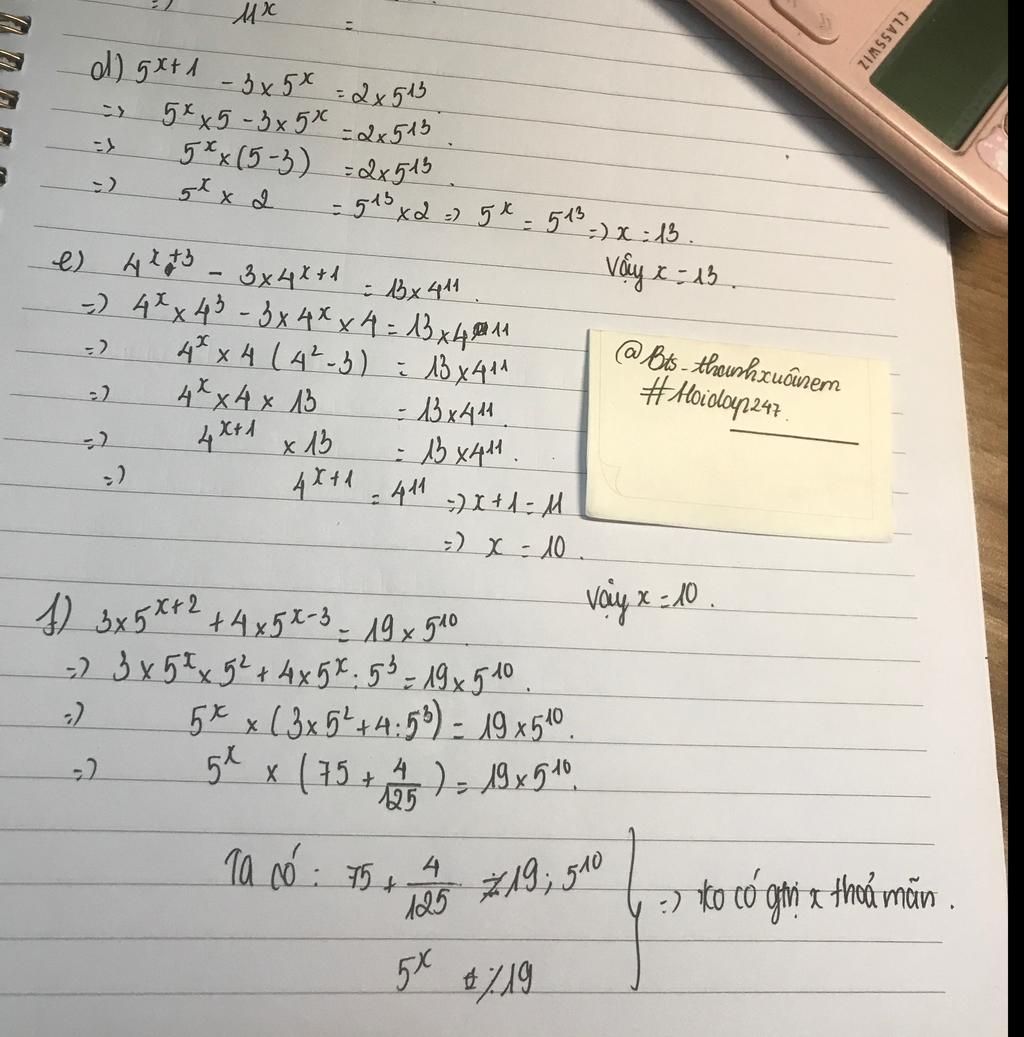 => 11^x =
CLASSWIZ
d) 5^{x+1} - 3 x 5^x = 2 x 5^{13}
=> 5^x x 5 - 3 x 5^x = 2 x 5^{13}.
=> 5^x x (5-3) = 2 x 5^{13}.
=> 5^x x 2 = 5^{13} x 2 => 5^x = 5^{13} => x = 13.
Vậy x = 13.
e) 4^{x+3} - 3 x 4^{x+1} = 13 x 4^{11}.
=> 4^x x 4^3 - 3 x 4^x x 4 = 13 x 4^{11}
=> 4^x x 4 ( 4^2 - 3 ) = 13 x 4^{11}
=> 4^x x 4 x 13 = 13 x 4^{11}.
=> 4^{x+1} x 13 = 13 x 4^{11}.
=> 4^{x+1} = 4^{11} => x + 1 = 11
=> x = 10.
Vậy x = 10.
@Bts_thanhxuânem
#Hoidap247.
f) 3 x 5^{x+2} + 4 x 5^{x-3} = 19 x 5^{10}
=> 3 x 5^x x 5^2 + 4 x 5^x : 5^3 = 19 x 5^{10}.
=> 5^x x (3 x 5^2 + 4 : 5^3) = 19 x 5^{10}.
=> 5^x x ( 75 + 4/125 ) = 19 x 5^{10}.
Ta có : 75 + 4/125 ⋮̸ 19 ; 5^{10}
5^x ⋮̸ 19
=> ko có gtrị x thoả mãn.